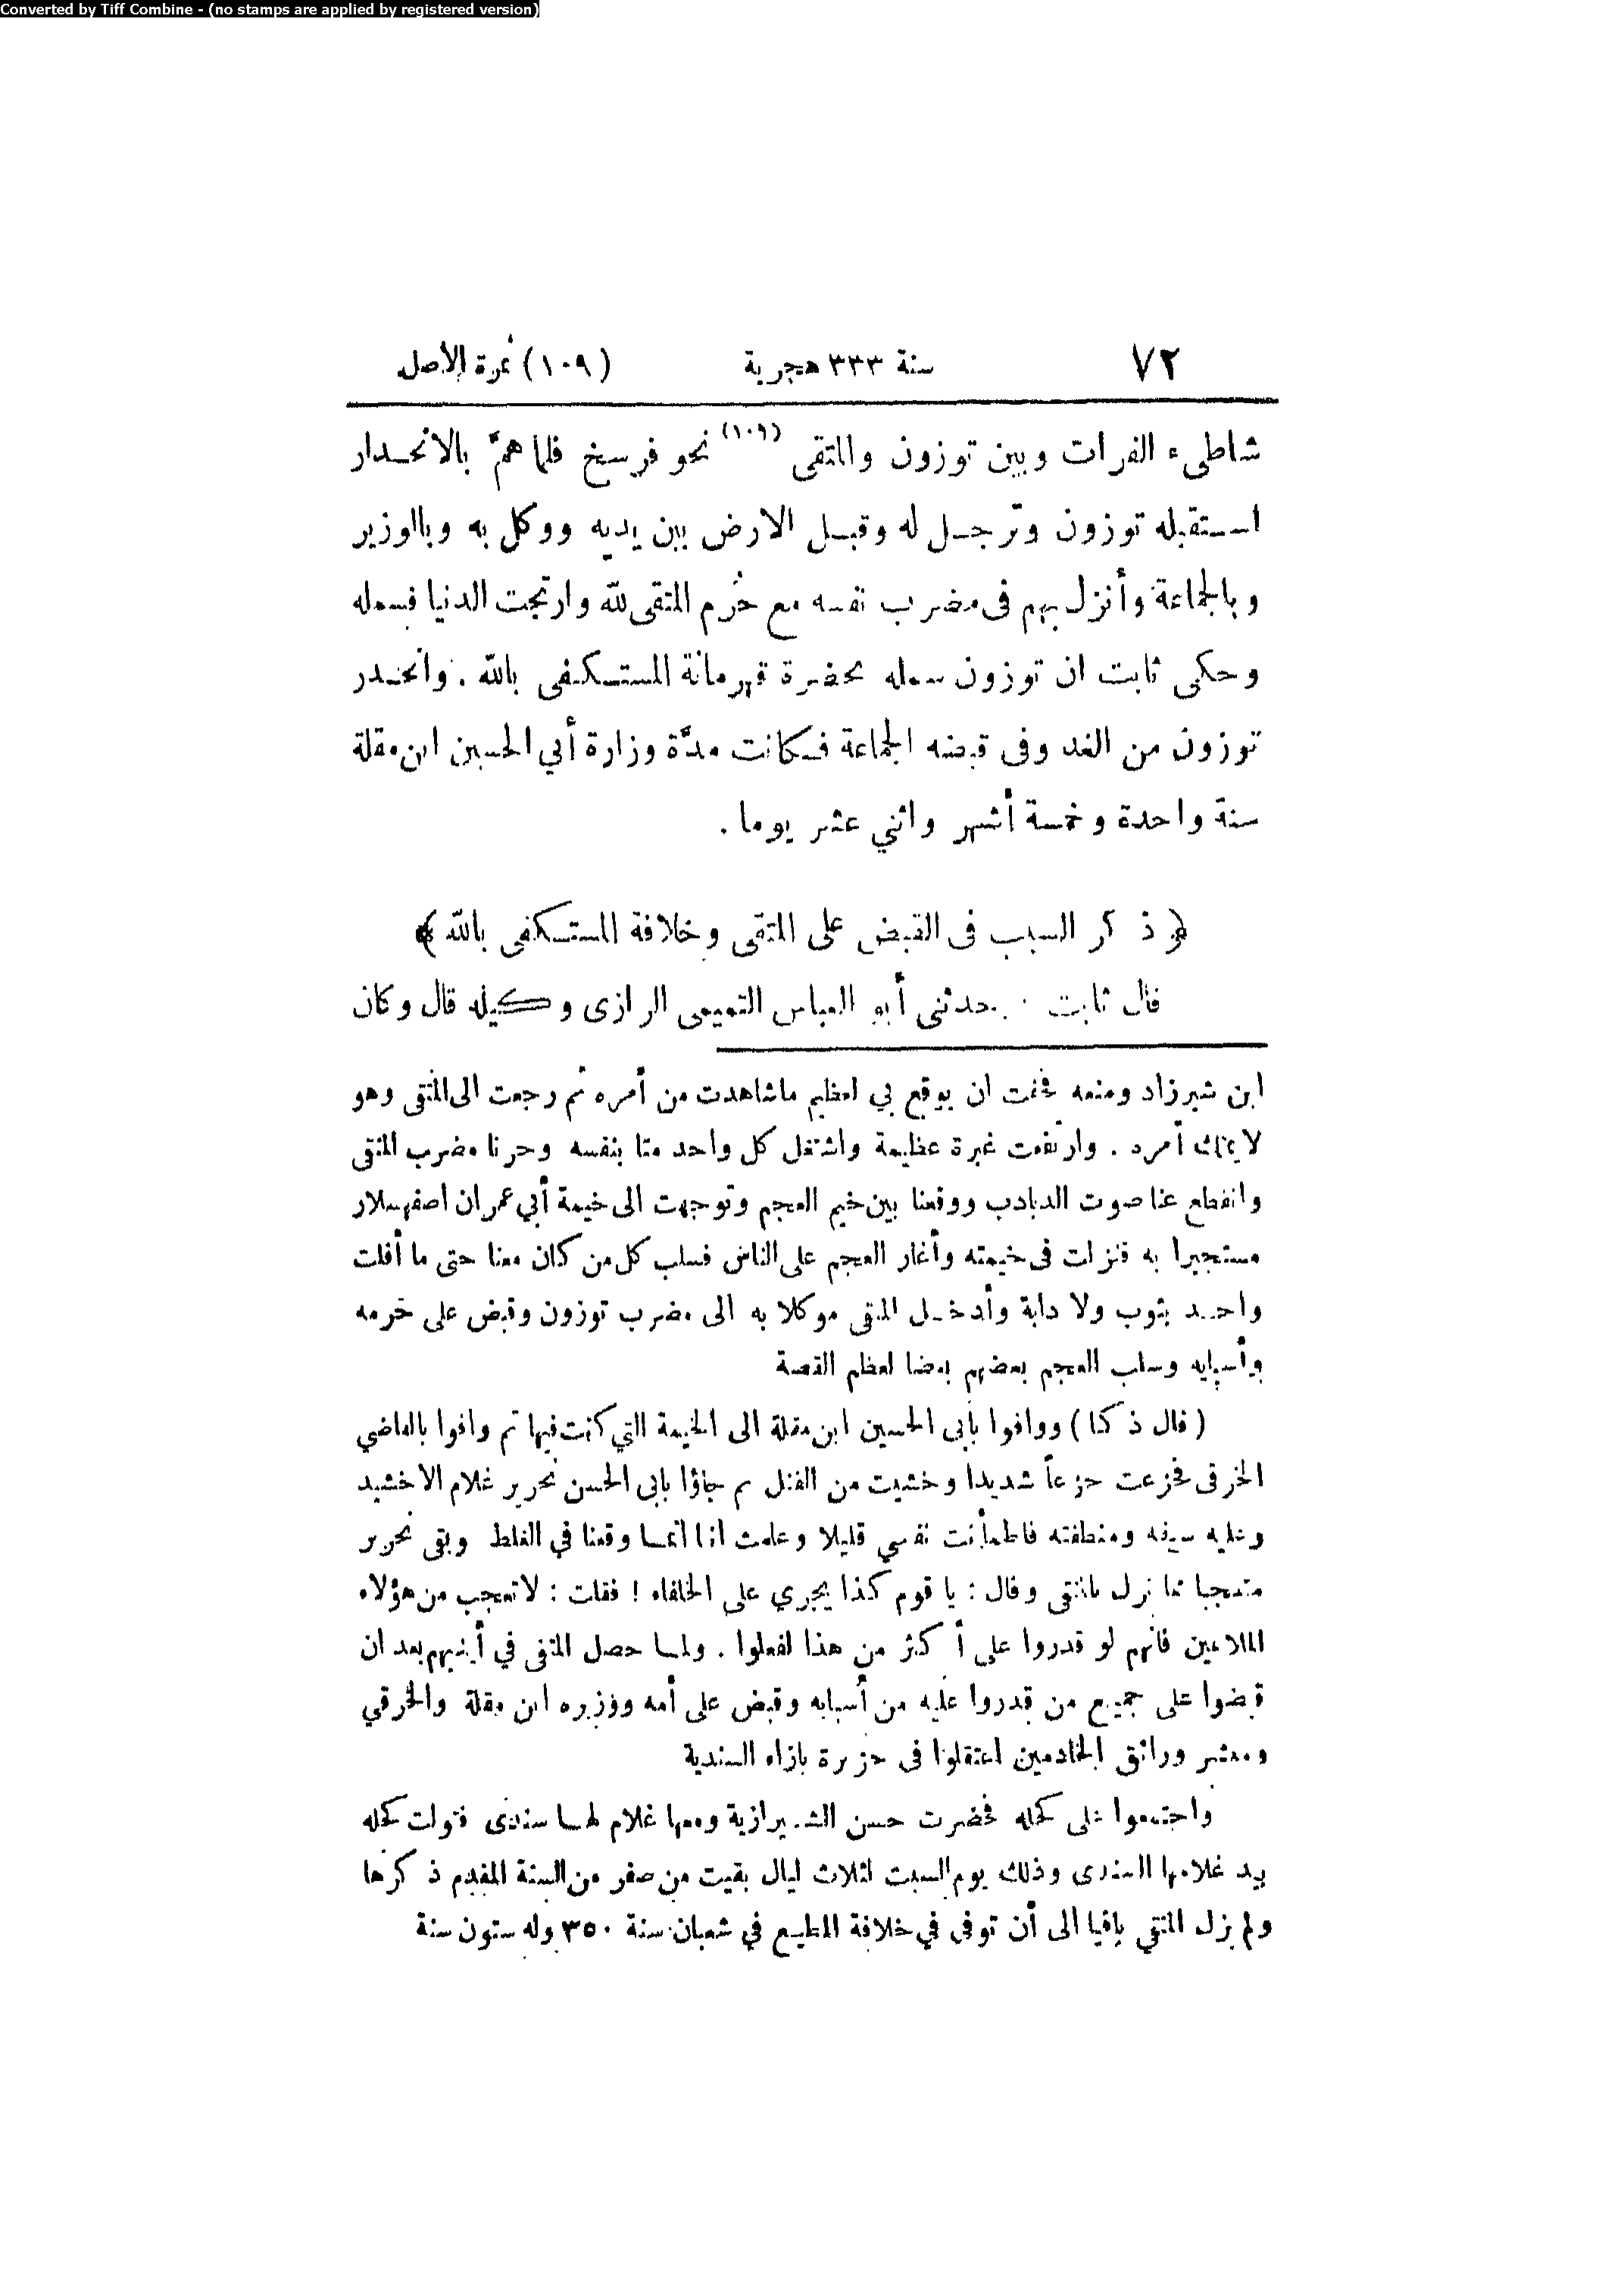 Converted by Tiff Combine - (no stamps are applied by registered version)
٧٢ سنة ٣٣٣ هجرية (١٠٩) نمرة الأصل
شاطىء الفرات وبين توزون والمتقى (١٠٩) نحو فرسخ فلما همّ بالانحدار
استقبله توزون وترجل له وقبل الارض بين يديه ووكل به وبالوزير
وبالجماعة وأنزل بهم فى مضرب نفسه مع حُرم المتقى لله وارتجت الدنيا فسمله
وحكى ثابت ان توزون سمله بحضرة قهرمانة المستكفى بالله. وانحدر
توزون من الغد وفى قبضه الجماعة فكانت مدّة وزارة أبي الحسين ابن مقلة
سنة واحدة وخمسة أشهر واثني عشر يوما.
﴿ ذكر السبب فى القبض على المتقى وخلافة المستكفى بالله ﴾
قال ثابت: حدثنى أبو العباس التميمى الرازى وكيله قال وكان
ابن شيرزاد ومنعه فخفت ان يوقع بي لعظيم ماشاهدت من أمره ثم رجعت الى المتقى وهو
لا يملك أمره. وارتفعت غبرة عظيمة واشتغل كل واحد منا بنفسه وحرنا مضرب المتقى
وانقطع عنا صوت الدبادب ووقعنا بين خيم العجم وتوجهت الى خيمة أبي عمران اصفهسلار
مستجيرا به فنزلت فى خيمته وأغار العجم على الناس فسلب كل من كان معنا حتى ما أفلت
واحد بثوب ولا دابة وأدخل المتقى موكلا به الى مضرب توزون وقبض على حرمه
وأسبابه وسلب العجم بعضهم بعضا لعظم القصة
(قال ذكا) ووافوا بأبى الحسين ابن مقلة الى الخيمة التي كنت فيها ثم وافوا بالقاضي
الخرقى فجزعت جزعاً شديدا وخشيت من القتل ثم جاؤا بابى الحسن نحرير غلام الاخشيد
وعليه سيفه ومنطقته فاطمأنت نفسي قليلا وعلمت انا انما وقعنا في الغلط وبقى نحرير
متعجبا مما نزل بالمتقى وقال: يا قوم كذا يجري على الخلفاء! فقلت: لا تعجب من هؤلاء
الملاعين فانهم لو قدروا على أكثر من هذا لفعلوا. ولما حصل المتقى في أيديهم بعد ان
قبضوا على جميع من قدروا عليه من أسبابه وقبض على أمه ووزيره ابن مقلة والخرقي
ومعشر ورائق الخادمين اعتقلوا فى جزيرة بازاء السندية
واجتمعوا على كحله فحضرت حسن الشيرازية ومعها غلام لها سندى فتولت كحله
بيد غلامها السندى وذلك يوم السبت لثلاث ليال بقيت من صفر من السنة المقدم ذكرها
ولم يزل المتقي باقيا الى أن توفى في خلافة المطيع في شعبان سنة ٣٥٠ وله ستون سنة